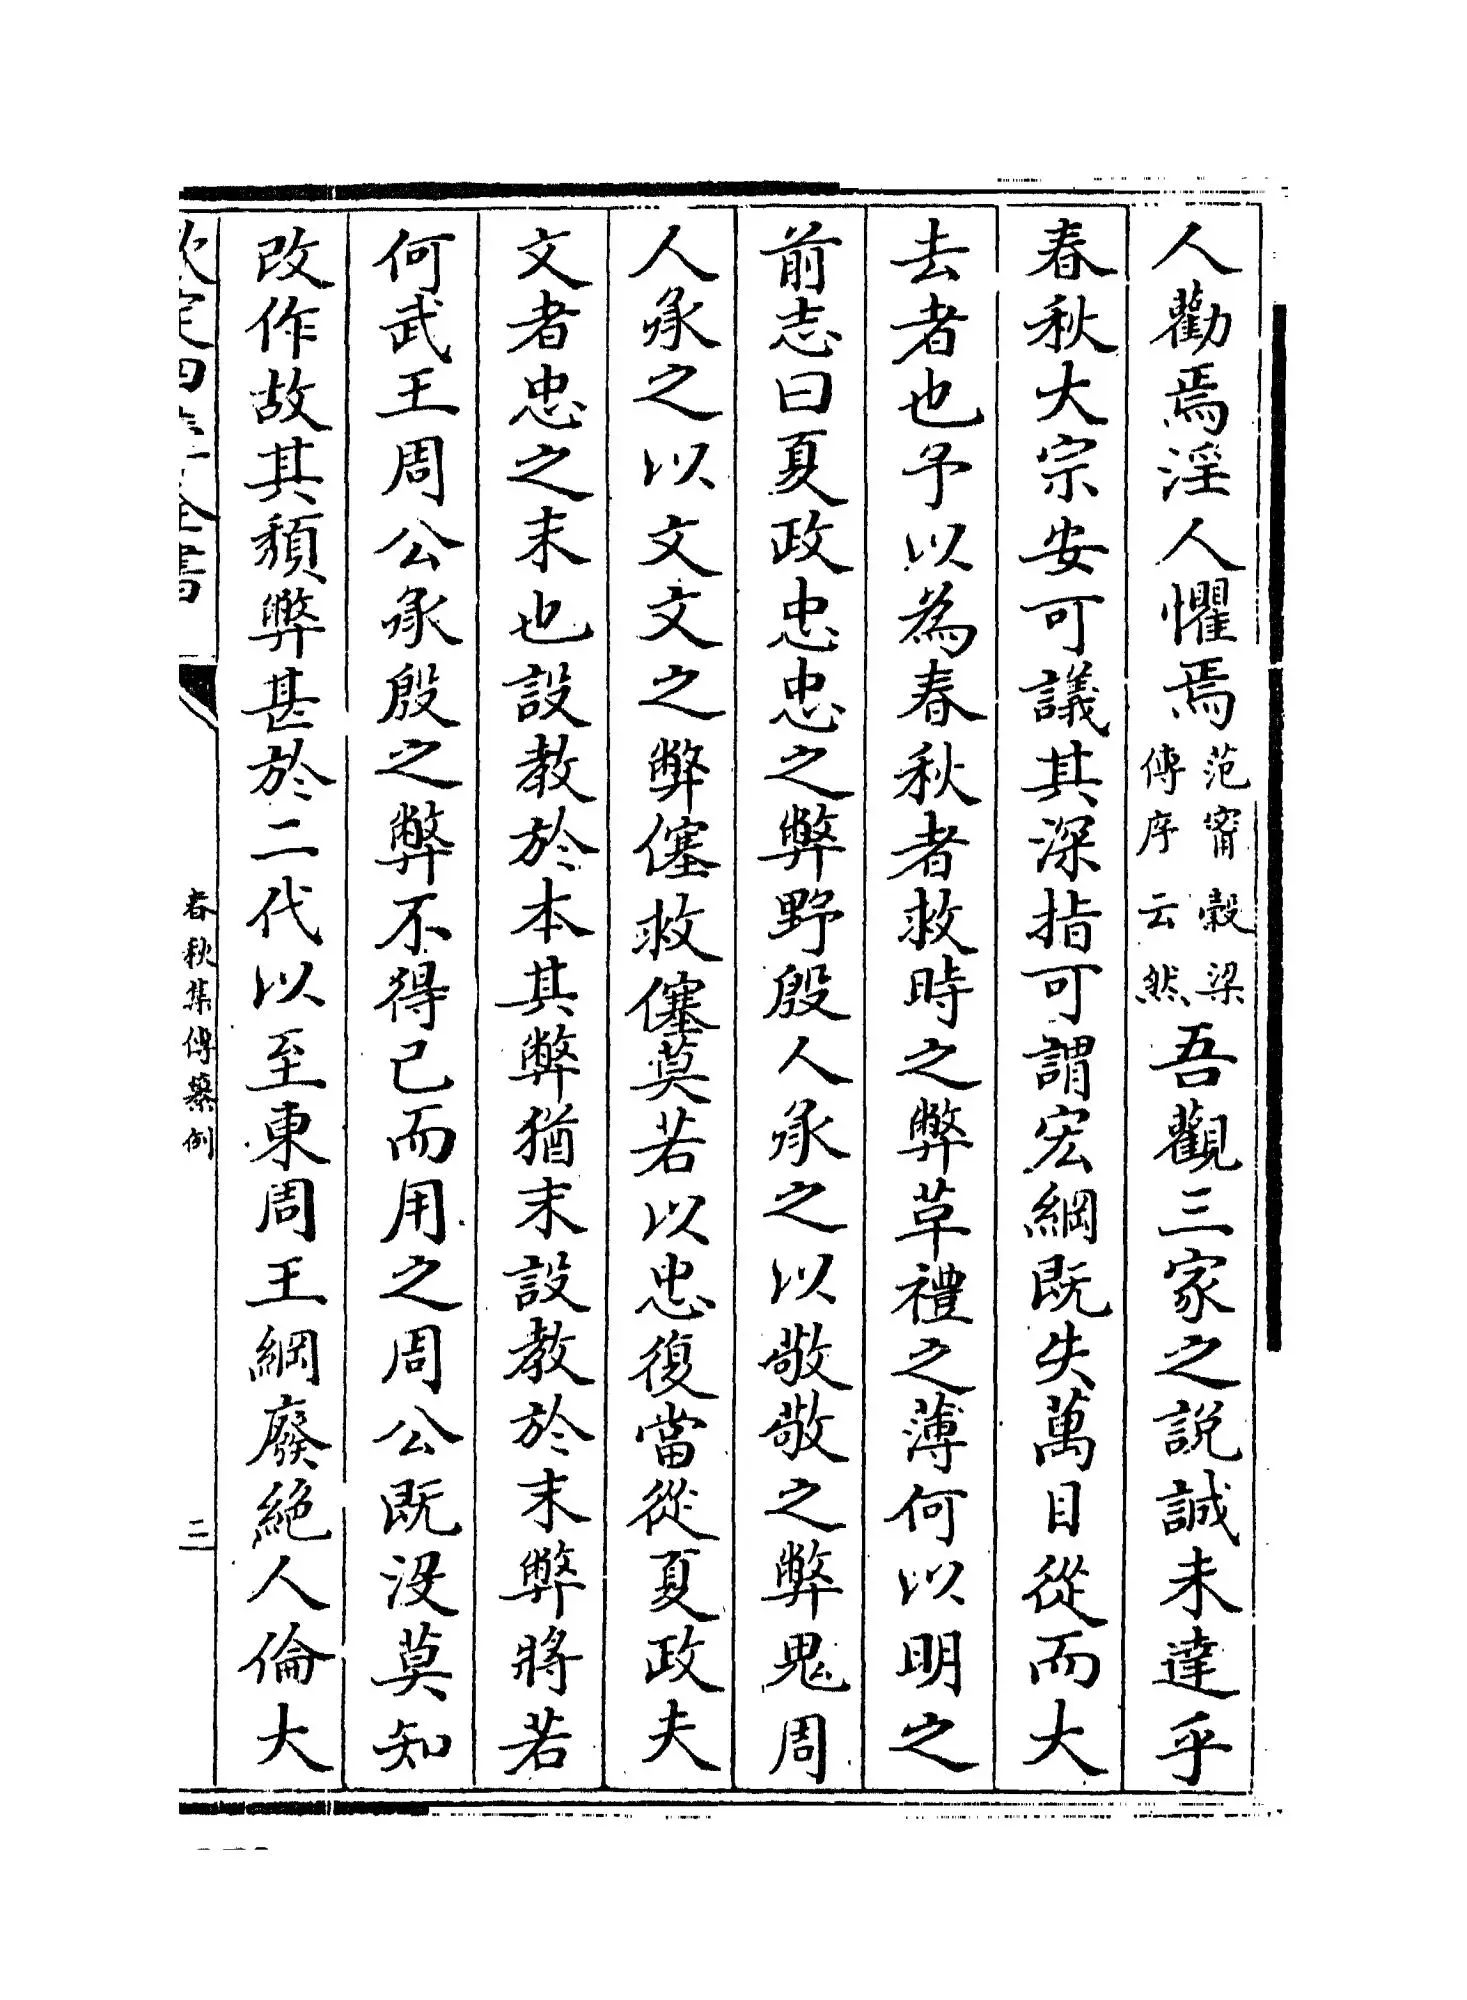 人勸焉淫人懼焉范甯穀梁傳序云然吾觀三家之說誠未達乎
春秋大宗安可議其深指可謂宏綱既失萬目從而大
去者也予以為春秋者救時之弊革禮之薄何以明之
前志曰夏政忠忠之弊野殷人承之以敬敬之弊鬼周
人承之以文文之弊僿救僿莫若以忠復當從夏政夫
文者忠之末也設教於本其弊猶末設教於末弊將若
何武王周公承殷之弊不得已而用之周公既没莫知
改作故其頹弊甚於二代以至東周王綱廢絕人倫大
欽定四庫全書
春秋集傳纂例
二